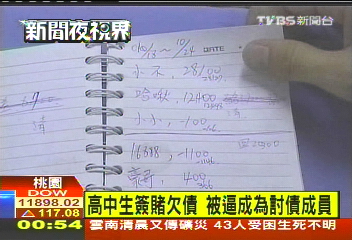 新聞夜視界
TVBS新聞台
10/13 ~ 10/24 DATE
小不, 28100
哈啾, 12400
清
小小, -100
16888, -1100
豪哥, 400
桃園
DOW
11898.02
117.08
高中生簽賭欠債 被逼成為討債成員
00:54
雲南清晨又傳礦災 43人受困生死不明